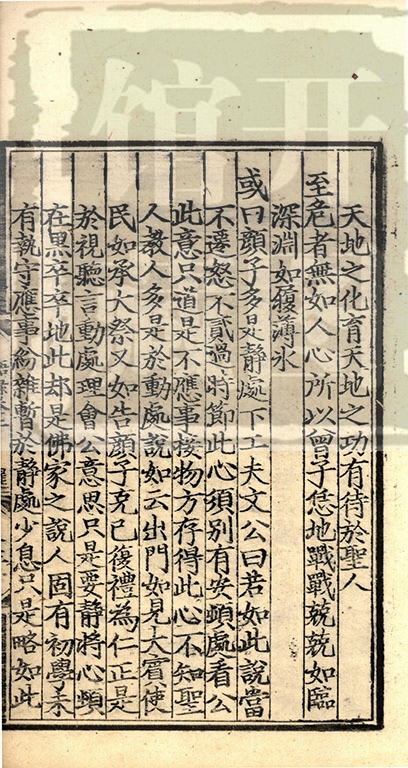 天地之化育天地之功有待於聖人
至危者無如人心所以曾子恁地戰戰兢兢如臨
深淵如履薄氷
或曰顔子多是静處下工夫文公曰若如此說當
不遷怒不貳過時節此心須别有安頓處看公
此意只道是不應事接物方存得此心不知聖
人教人多是於動處說如云出門如見大賓使
民如承大祭又如告顔子克己復禮為仁正是
於視聽言動處理會公意思只是要静將心頓
在黒卒卒地此却是佛家之說人固有初學未
有執守應事紛雜暫於静處少息只是略如此